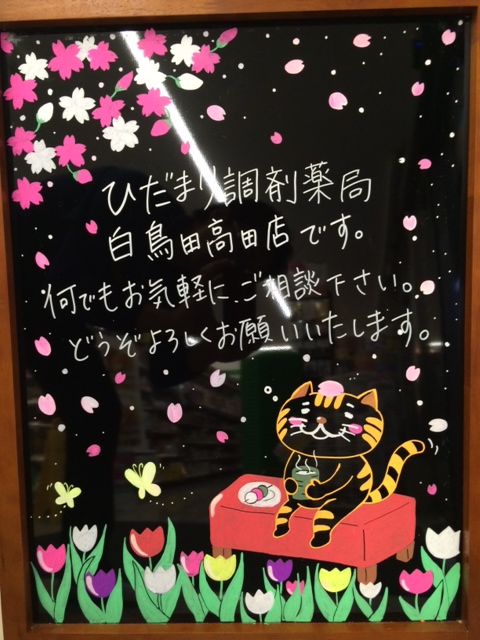 ひだまり調剤薬局
白鳥田高田店です。
何でもお気軽に、ご相談下さい。
どうぞよろしくお願いいたします。